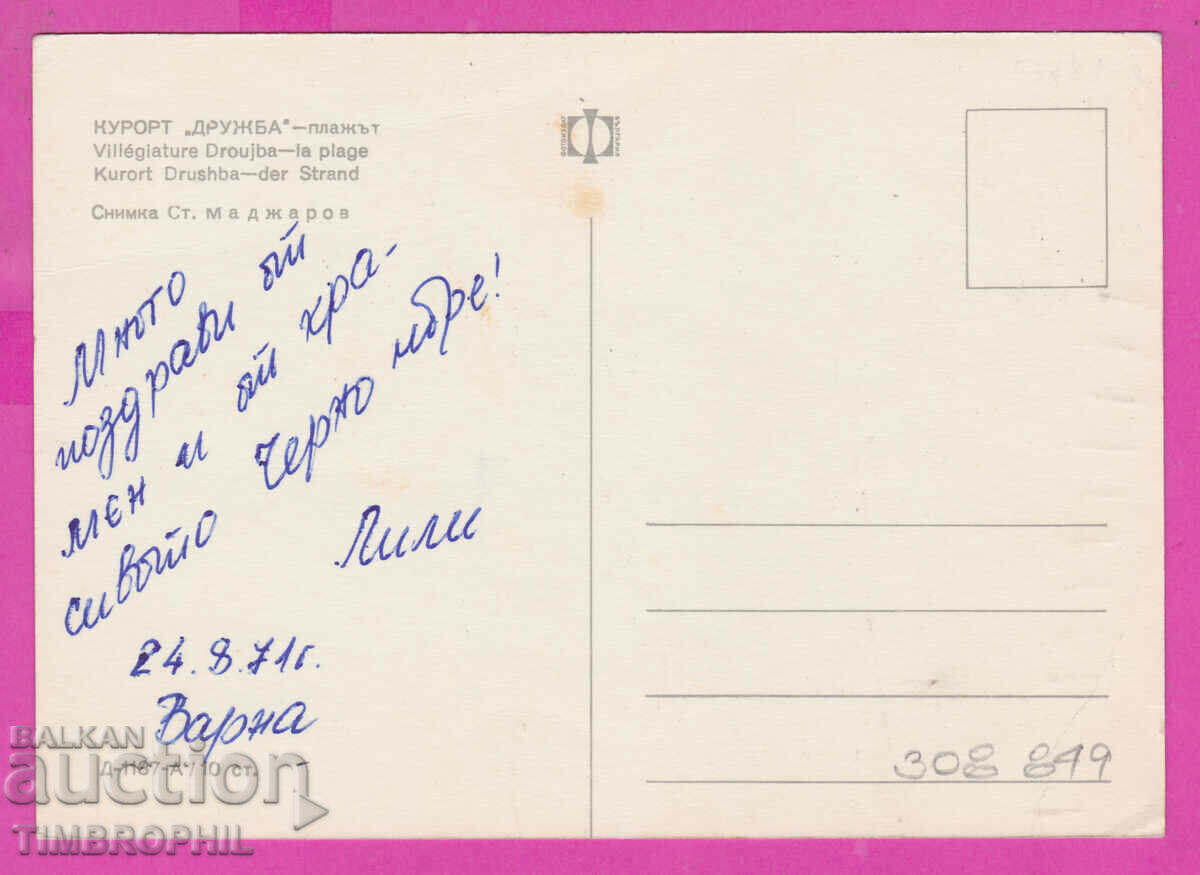 КУРОРТ „ДРУЖБА“—плажът
Villégiature Droujba—la plage
Kurort Drushba—der Strand
Снимка Ст. Маджаров
ФОТОИЗДАТ
БЪЛГАРИЯ
Много
поздрави от
мен и от кра-
сивото Черно море!
Лили
24.8.71г.
Варна
Д-1187-А / 10 ст.
308 849
BALKAN
auction
TIMBROPHIL